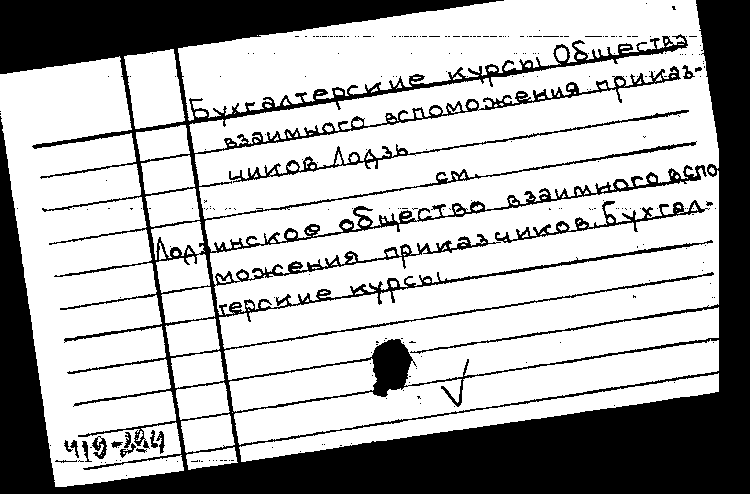 Бухгалтерские курсы Общества
взаимного вспоможения приказ-
чиков. Лодзь
см.
Лодзинское общество взаимного вспо-
можения приказчиков. Бухгал-
терские курсы.